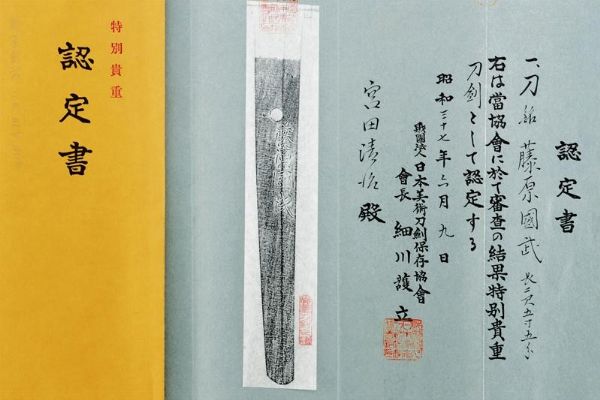 特別貴重
認定書
認定書
一、刀 銘 藤原國武 長二尺五寸五分
右は當協會に於て審査の結果特別貴重
刀剣として認定する
昭和三十七年六月九日
財團法人日本美術刀剣保存協會
會長 細川護立
宮田清
殿